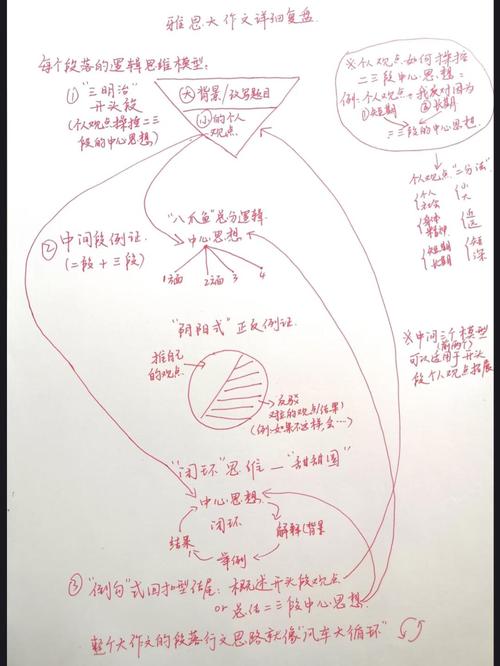 雅思大作文详细复盘
每个段落的逻辑思维模型:
①"三明治"
开头段
(个人观点操控二三
段的中心思想)
(大)背景/改写题目
(小)的个人
观点
※个人观点如何操控
二三段中心思想:
例:个人观点→我反对因为
①短期 ②长期
二三段的中心思想
个人观点"二分法"
个人 社会
身体 精神
短期 长期
小 大
近 远
浅 深
②中间段例证
(二段+三段)
"八爪鱼"总分逻辑
中心思想
1方面 2方面 3 4
"阴阳式"正反例证
推自己
的观点
反驳
对立的观点/结果)
(例:如果不这样,会…)
※中间三个模型
(前两个)
可以适用于开头
段个人观点拓展
"闭环"思维—"甜甜圈"
中心思想
闭环
解释/背景
举例
结果
③"倒勾"式回扣型结尾:概述开头段观点
or 总结二三段中心思想
整个大作文的段落行文思路就像"汽车大循环"